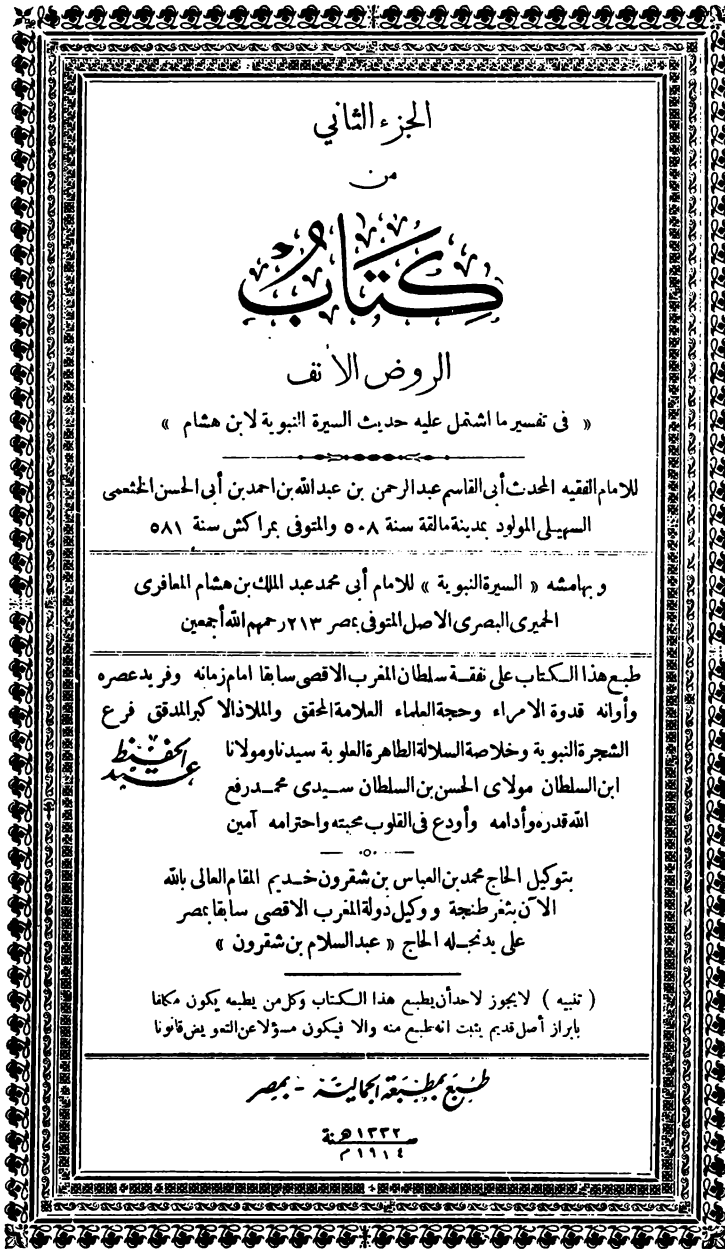 الجزء الثاني
من
كتاب
الروض الأنف
« فى تفسير ما اشتمل عليه حديث السيرة النبوية لابن هشام »
للامام الفقيه المحدث أبى القاسم عبد الرحمن بن عبد الله بن احمد بن أبى الحسن الخثعمى
السهيلى المولود بمدينة مالقة سنة ٥٠٨ والمتوفى بمراكش سنة ٥٨١
و بهامشه « السيرة النبوية » للامام أبى محمد عبد الملك بن هشام المعافرى
الحميرى البصرى الاصل المتوفى بمصر ٢١٣ رحمهم الله أجمعين
طبع هذا الكتاب على نفقة سلطان المغرب الاقصى سابقا امام زمانه وفريد عصره
وأوانه قدوة الامراء وحجة العلماء العلامة المحقق والملاذ الاكبر المدقق فرع
الشجرة النبوية وخلاصة السلالة الطاهرة العلوية سيدنا ومولانا
عبد الحفيظ
ابن السلطان مولاى الحسن بن السلطان سيدى محمد رفع
الله قدره وأدامه وأودع فى القلوب محبته واحترامه آمين
بتوكيل الحاج محمد بن العباس بن شقرون خديم المقام العالى بالله
الآن بثغر طنجة ووكيل دولة المغرب الاقصى سابقا بمصر
على يد نجله الحاج « عبد السلام بن شقرون »
( تنبيه ) لا يجوز لاحد أن يطبع هذا الكتاب وكل من يطبعه يكون مكلفا
بابراز أصل قديم يثبت انه طبع منه والا فيكون مسؤلا عن التعويض قانونا
طبع بمطبعة الجمالية - بمصر
سنة ١٣٣٢ هـ
١٩١٤ م